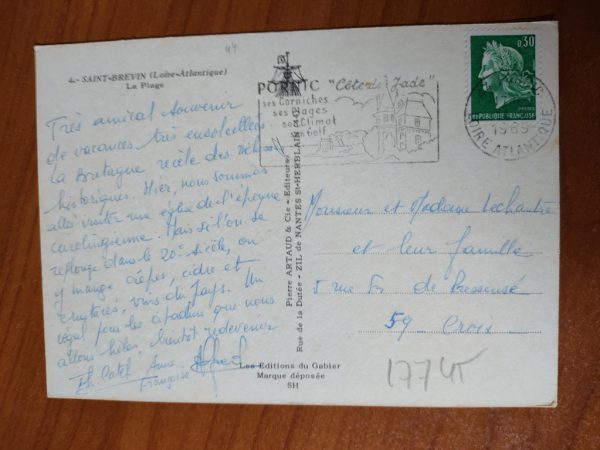 44
4.- SAINT-BREVIN (Loire-Atlantique)
La Plage
Très amical souvenir
de vacances très ensoleillées.
La Bretagne recèle des trésors
historiques. Hier, nous sommes
allés visiter une église de l'époque
carolingienne. Mais si l'on se
replonge dans le 20e siècle, on
y mange crêpes, cidre et
crustacés, vins du pays. Un
régal pour les que nous
allons hélas, bientôt redevenir
Anne
Françoise
Pierre ARTAUD & Cie - Editeurs
Rue de la Dutée - ZIL de NANTES St-HERBLAIN (44)
Les Editions du Gabier
Marque déposée
SH
PORNIC "Côte de Jade"
ses Corniches
ses Plages
son Climat
son Golf
0,30
REPUBLIQUE FRANÇAISE
1969
LOIRE ATLANTIQUE
Monsieur et Madame Lechantre
et leur famille
5 rue de Pressensé
59 - Croix -
1774T